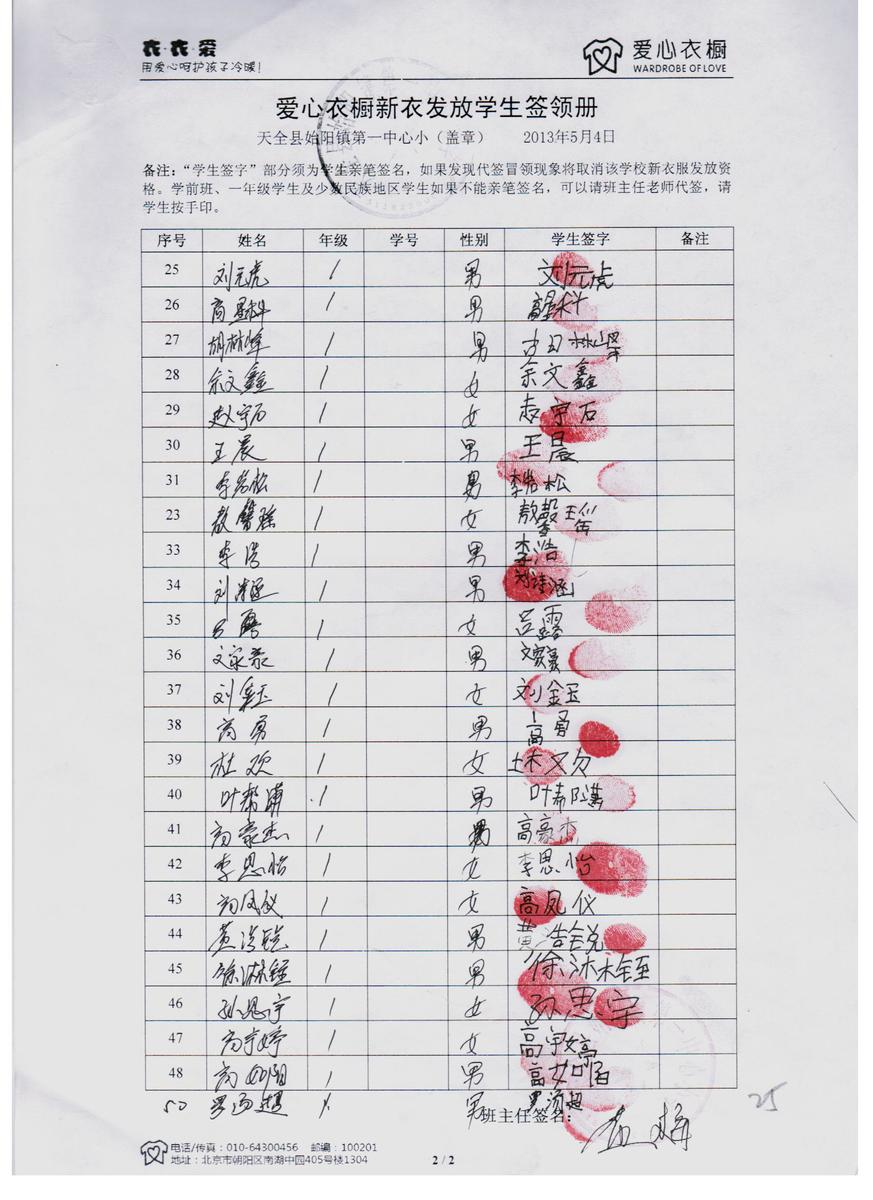 衣·衣·爱
用爱心呵护孩子冷暖!
爱心衣橱
WARDROBE OF LOVE
爱心衣橱新衣发放学生签领册
天全县始阳镇第一中心小(盖章) 2013年5月4日
备注:“学生签字”部分须为学生亲笔签名,如果发现代签冒领现象将取消该学校新衣服发放资
格。学前班、一年级学生及少数民族地区学生如果不能亲笔签名,可以请班主任老师代签,请
学生按手印。
序号 姓名 年级 学号 性别 学生签字 备注
25 刘元虎 1 男 刘元虎
26 1 男
27 胡林峰 1 男 胡林峰
28 余文鑫 1 女 余文鑫
29 赵宇石 1 女 赵宇石
30 王晨 1 男 王晨
31 1 男
23 1 女
33 李浩 1 男 李浩
34 1 男 刘诗涵
35 吕露 1 女 吕露
36 文家豪 1 男
37 刘金玉 1 女 刘金玉
38 高勇 1 男 高勇
39 杜欢 1 女 杜欢
40 1 男
41 高豪杰 1 男 高豪杰
42 李思怡 1 女 李思怡
43 高凤仪 1 女 高凤仪
44 黄浩锐 1 男 黄浩锐
45 徐沐铚 1 男 徐沐铚
46 孙思宇 1 女 孙思宇
47 高宇婷 1 女 高宇婷
48 1 男
50 罗汤超 1 男 罗汤超
班主任签名:
25
电话/传真:010-64300456 邮编:100201
地址:北京市朝阳区南湖中园405号楼1304
2 / 2